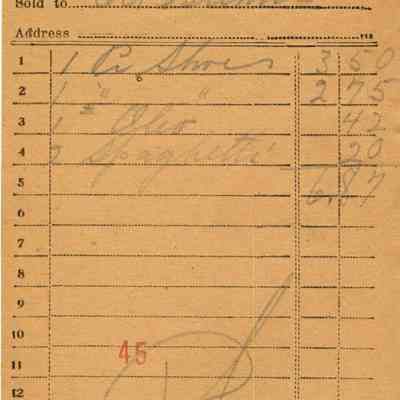 Sold to
Address
1 1 Pr Shoes 3 50
2 1 " " 2 75
3 1 # Oleo 42
4 2 Spaghetti 20
5 6.87
6
7
8
9
10
45
11
12